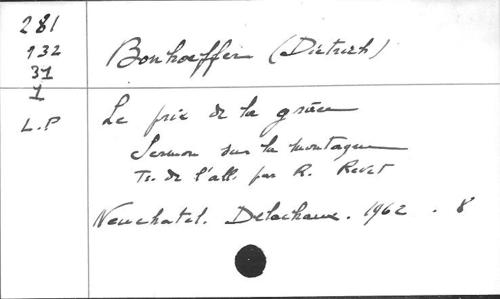 281
132
31
1
L.P
Bonhoeffer (Dietrich)
Le prix de la grâce
Sermon sur la montagne
Tr. de l'all. par R. Revet
Neuchatel. Delachaux. 1962. 8